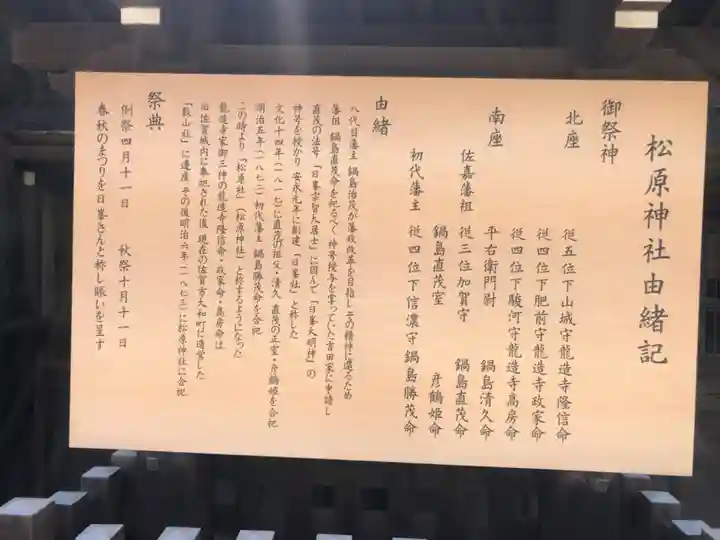 松原神社由緒記
御祭神
北座
従五位下山城守龍造寺隆信命
従四位下肥前守龍造寺政家命
従四位下駿河守龍造寺高房命
南座
平右衛門尉 鍋島清久命
佐嘉藩祖 従三位加賀守 鍋島直茂命
鍋島直茂室 彦鶴姫命
初代藩主 従四位下信濃守鍋島勝茂命
由緒
八代目藩主 鍋島治茂が藩政改革を目指し その精神に還るため
藩祖 鍋島直茂命を祀るべく 神号授与を掌っていた吉田家に申請し
直茂の法号「日峯宗智大居士」に因んで「日峯大明神」の
神号を授かり 安永元年に創建「日峯社」と称した
文化十四年(一八一七)に直茂の祖父・清久 直茂の正室・彦鶴姫を合祀
明治五年(一八七二)初代藩主 鍋島勝茂命を合祀
この時より「松原社」(松原神社)と称するようになった
龍造寺家御三神の龍造寺隆信命・政家命・高房命は
佐賀城内に奉祀された後 現在の佐賀市大和町に造営した
「叡山社」に遷座 その後明治六年(一八七三)に松原神社に合祀
祭典
例祭四月十一日 秋祭十月十一日
春秋のまつりを日峯さんと称し賑いを呈す